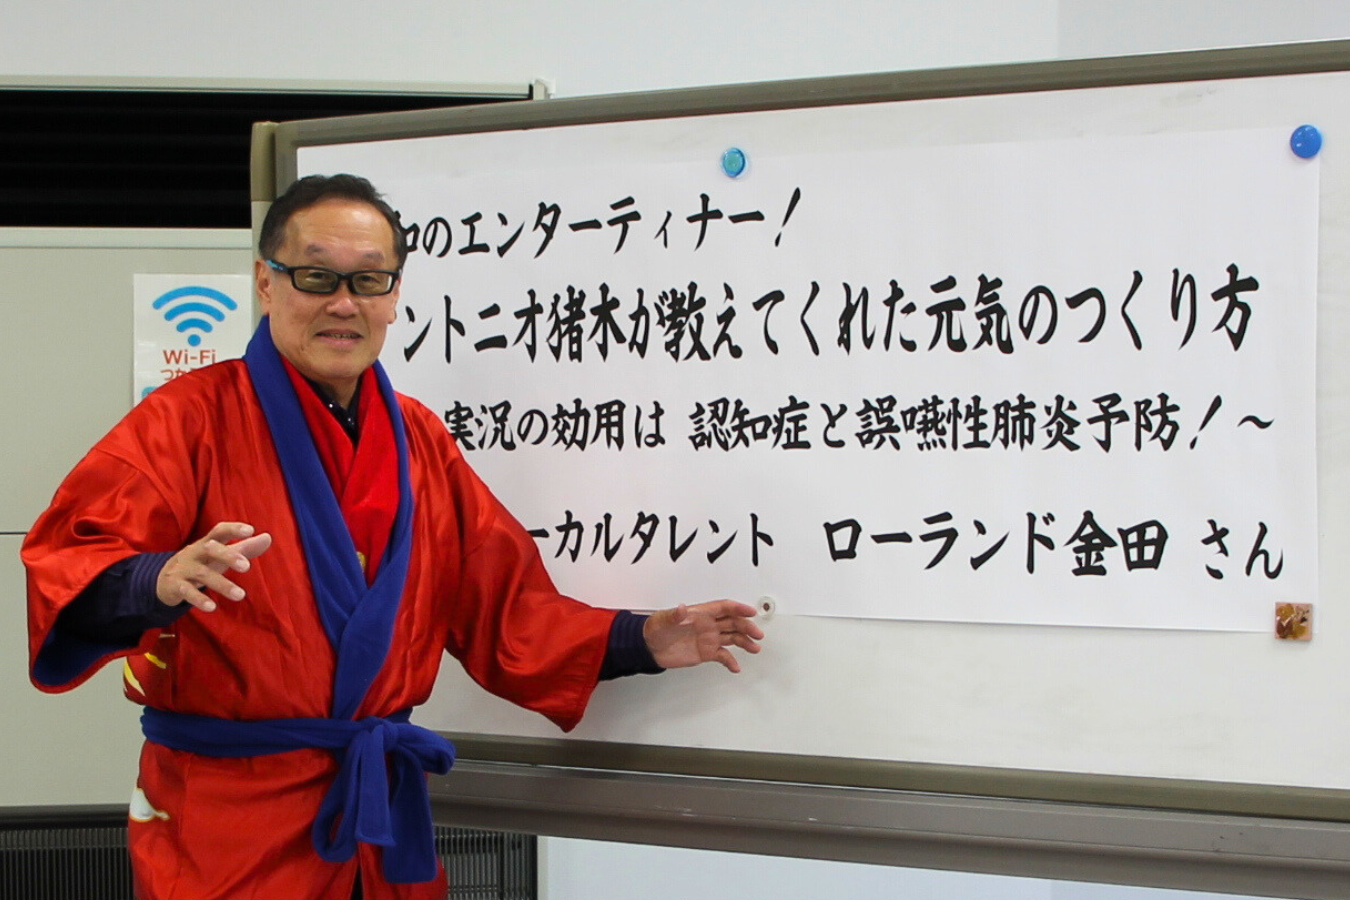 Wi-Fi
和のエンターティナー！
ントニオ猪木が教えてくれた元気のつくり方
実況の効用は 認知症と誤嚥性肺炎予防！～
ーカルタレント ローランド金田 さん